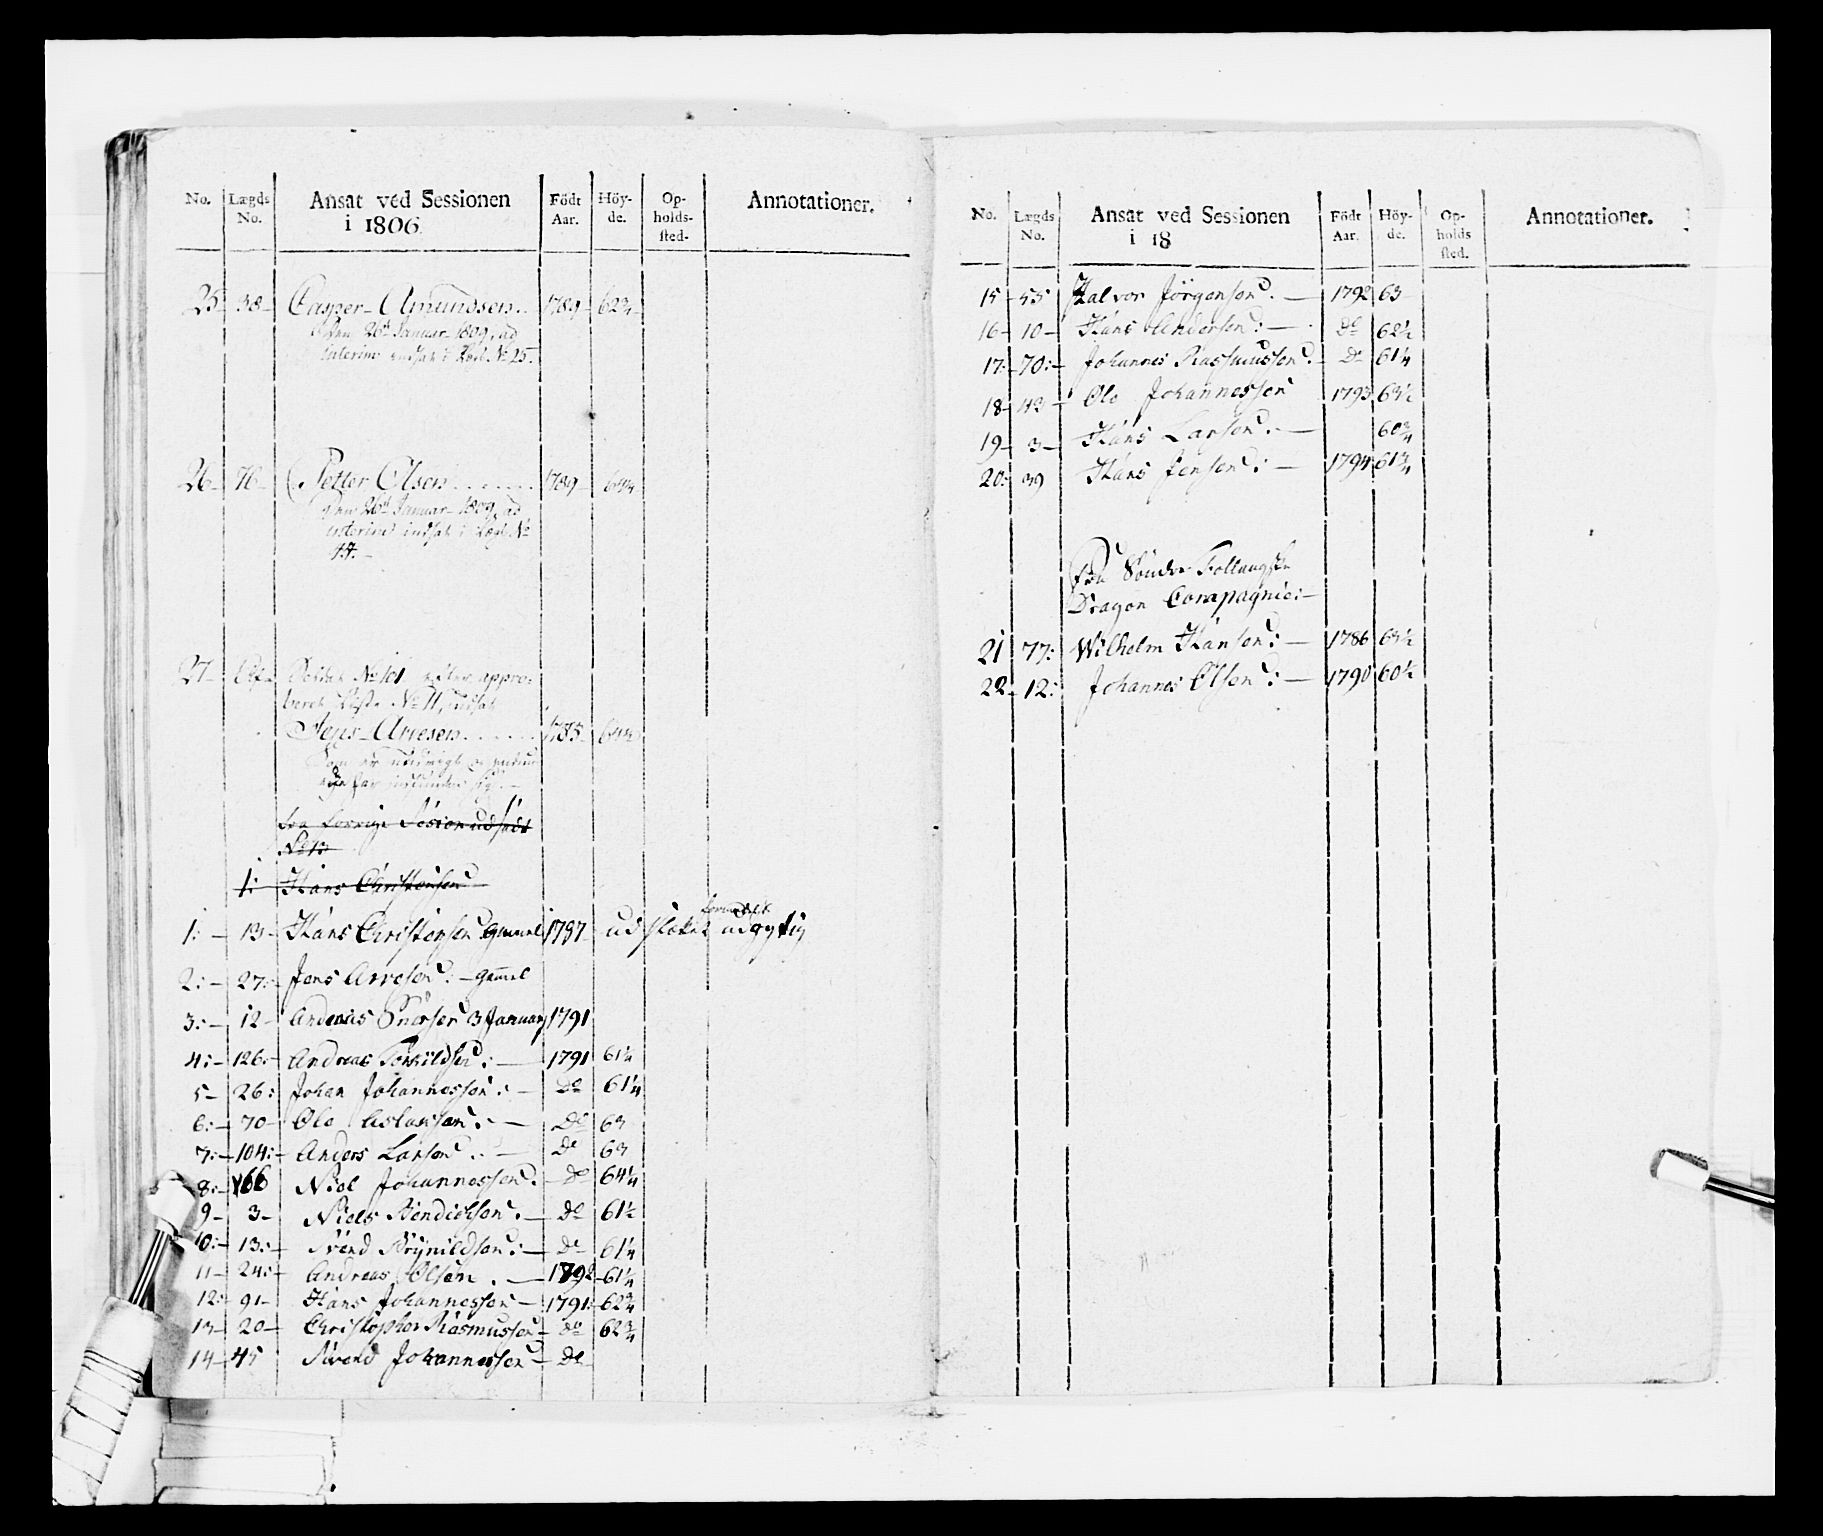 No. Lægds No. Ansat ved Sessionen i 1806 Födt Aar. Höy-de. Op-holds-sted. Annotationer.
25 38 Casper Amundsen 1789 62¾
Den 26de Januar 1809, ad
interim indsat i Lægd No 25.
26 76 Petter Olsen 1789 64¼
Den 26de Januar 1809, ad
interim indsat i Lægd No
44.
27 Efter No 101 efter appro-
beret Liste No 11, indsat
Jens Arvesen 1785
Som er
fra forrige Session udsadt
No 13
1: Hans Christensen
1: 13 Hans Christensen gammel 1787 udslettet formedelst udygtig
2: 27: Jens Arvesen: gammel
3: 12 Andreas 3 January 1791
4: 126: Andreas Torkildsen: 1791 61¼
5 26: Johan Johannessen: Do 61¼
6: 70 Ole Aslaksen: Do 63
7: 104: Anders Larsen: Do 63
8: 66 Niel Johannessen: Do 64¼
9 3 Niels Bendichsen: Do 61½
10: 13: Svend Brynildsen: Do 61¼
11 24: Andreas Olsen. 1792 61¼
12: 91 Hans Johannessen 1791: 62¾
13 20 Christopher Rasmussen do 62¾
14 45 Svend Johannessen Do
No. Lægds No. Ansat ved Sessionen i 18 Födt Aar. Höy-de. Op-holds sted. Annotationer.
15 55 Halvor Jörgensen. 1792 63
16 10 Hans Andersen: Do 62½
17: 70: Johannes Rasmussen. Do 61¼
18 43 Ole Johannessen 1793 63½
19 3 Hans Larsen. 60¾
20: 39 Hans Jensen: 1794 61¾
Fra Söndre Follaugske
Dragon Compagnie:
21 77: Wilhelm Hansen: 1786 63½
22 12: Johannes Olsen: 1790 60½